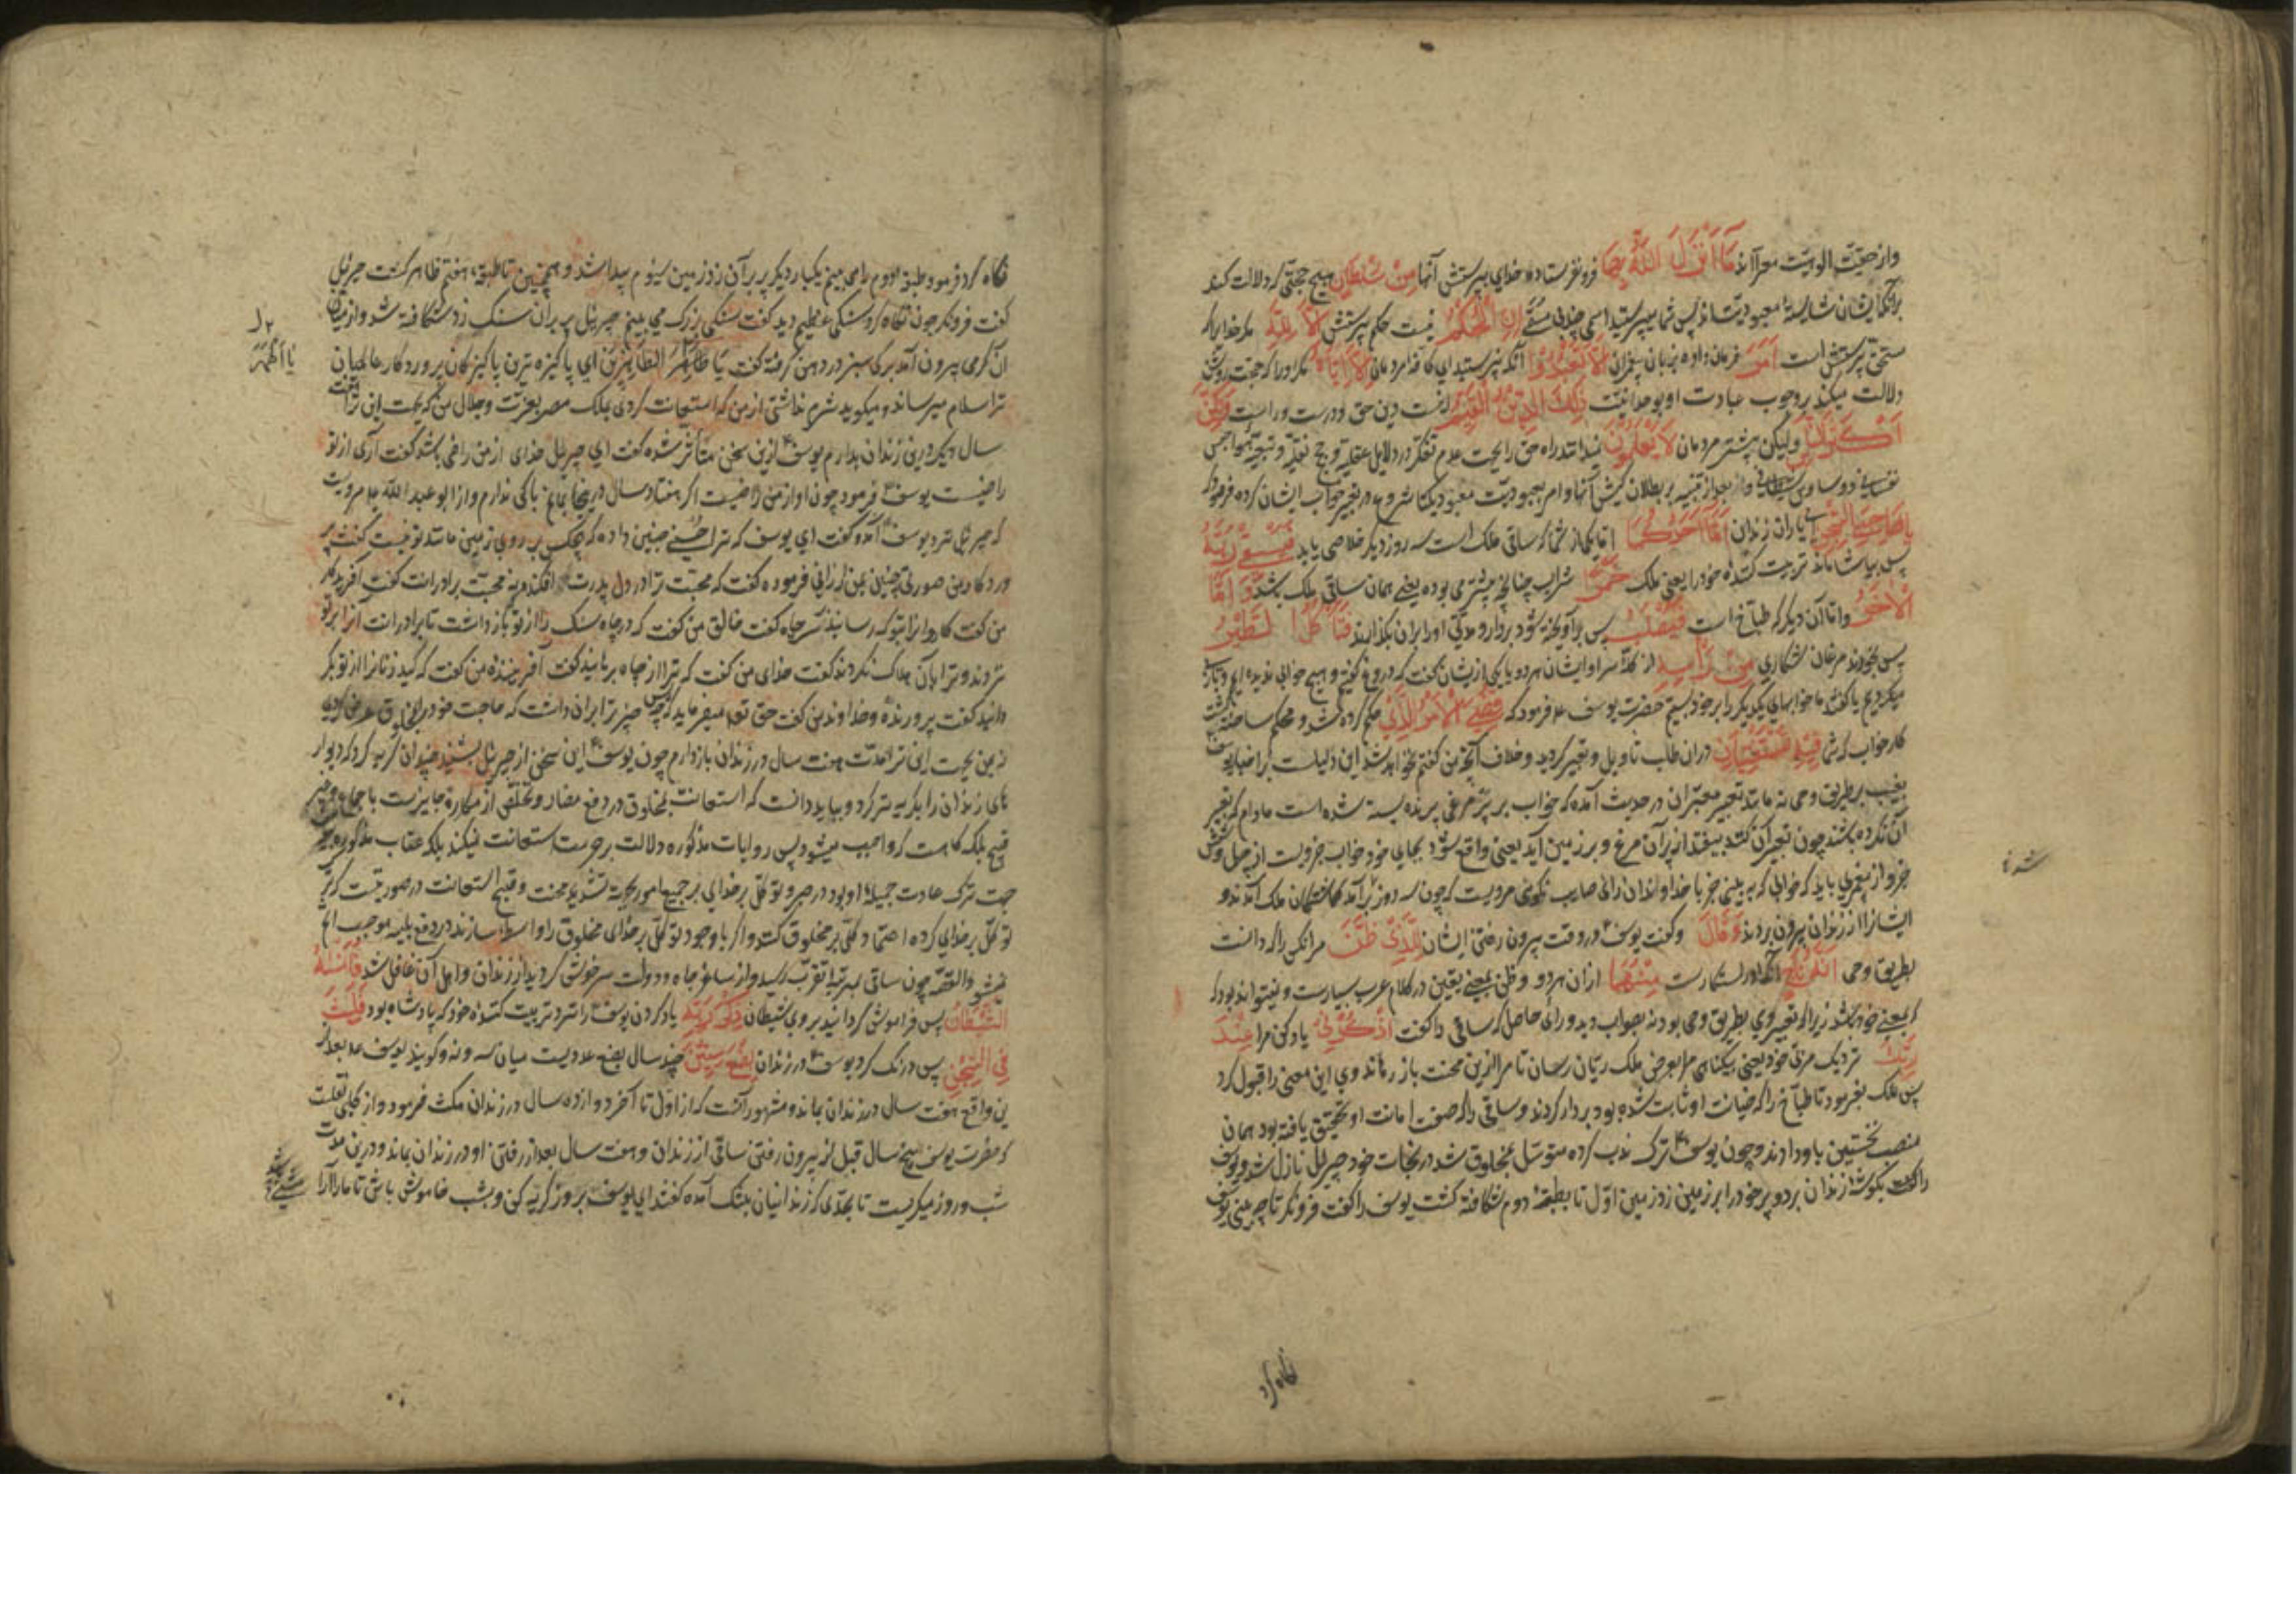 واز حقیقت الوهیت معرااند مَا أَنْزَلَ اللَّهُ بِهَا فرو نفرستاده خدای بپرستش آنها مِنْ سُلْطَانٍ هیچ حجتی که دلالت کند
برآنکه ایشان شایسته معبودیت اند پس شما میپرستید اسمی چند بی مسمی إِنِ الْحُكْمُ نیست حکم پرستش إِلَّا لِلَّهِ مگر خدایرا که
مستحق پرستش است أَمَرَ فرمان داده بزبان پیغمبران أَلَّا تَعْبُدُوا آنکه نپرستید ای کافه مردمان إِلَّا إِيَّاهُ مگر او را که حجت روشن
دلالت میکند بر وجوب عبادت او بوحدانیت ذَلِكَ الدِّينُ الْقَيِّمُ اینست دین حق و درست و راست وَلَكِنَّ
أَكْثَرَ النَّاسِ ولیکن بیشتر مردمان لَا يَعْلَمُونَ نمیدانند راه حق را بجهت عدم تفکر در دلایل عقلیه و حجج نقلیه و تبعیة هواجس
نفسانی و وساوس شیطانی و بعد از تنبیه بر بطلان کیش آنها و امر بعبودیت معبود یکتا شروع در تعبیر خواب ایشان کرده فرمود که
يَا صَاحِبَيِ السِّجْنِ ای یاران زندان أَمَّا أَحَدُكُمَا اما یکی از شما که ساقی ملک است سه روز دیگر خلاصی یابد فَيَسْقِي رَبَّهُ
پس بیاشاماند تربیت کننده خود را یعنی ملک خَمْرًا شراب چنانچه پیشتر می بوده یعنی همان ساقی ملک باشد وَأَمَّا
الْآخَرُ واما آن دیگر که طباخ است فَيُصْلَبُ پس برآویخته شود بردار و مدتی او را بران بگذارند فَتَأْكُلُ الطَّيْرُ
پس بخورند مرغان شکاری مِنْ رَأْسِهِ از کله سر او ایشان هر دو یا یکی ازیشان گفت که دروغ گفتیم و هیچ خوابی ندیده ایم و بازی
میکردیم یا گفتند ما خوابهای یکدیگر را بر خود بستیم حضرت یوسف ع فرمود که قُضِيَ الْأَمْرُ الَّذِي حکم کرده شد و محکم ساخته گشت
کار خواب که شما فِيهِ تَسْتَفْتِيَانِ دران طلب تاویل و تعبیر کردید و خلاف آنچه من گفتم نخواهد شد این دلیلست بر اخبار یوسف
بغیب بطریق وحی نه مانند تعبیر معبران در حدیث آمده که خواب بر پر مرغی پرنده بسته شده است مادام که تعبیر
آن نکرده باشند چون تعبیر آن کنند بیفتد از پر آن مرغ و بر زمین آید یعنی واقع شود بجای خود خواب جزویست از چهل و شش
جزو از پیغمبری باید که خوابی که به بینی جز با خداوندان رای صایب نگوئی مرویست که چون سه روز برآمد گماشتگان ملک آمدند و
ایشانرا از زندان بیرون بردند وَقَالَ وگفت یوسف در وقت بیرون رفتن ایشان لِلَّذِي ظَنَّ مر آنکس را که دانست
بطریق وحی أَنَّهُ نَاجٍ آنکه او رستگارست مِنْهُمَا ازان هر دو و ظن بمعنی یقین در کلام عرب بسیارست و نمیتواند بود که
بمعنی خود باشد زیرا که تعبیر وی بطریق وحی بود نه بصواب دید و رای حاصل که ساقی را گفت اذْكُرْنِي یاد کن مرا عِنْدَ
رَبِّكَ نزدیک مربی خود یعنی بیگناهی مرا بعرض ملک ریان رسان تا مرا ازین محنت باز رهاند وی این معنی را قبول کرد
پس ملک بفرمود تا طباخ را که خیانت او ثابت شده بود بردار کردند و ساقی را که صفت امانت او تحقیق یافته بود همان
منصب نخستین باو دادند و چون یوسف ترک ندب کرده متوسل بمخلوق شد در نجات خود جبرئیل نازل شد و یوسف
را گفت بگوشه زندان برد و پر خود را بر زمین زد زمین اول تا بطبقه دوم شکافته گشت یوسف را گفت فرو نگر تا چه می بینی یوسف
نگاه کرد
نگاه کرد فرمود طبقه دوم را می بینم یکبار دیگر پر بر آن زد زمین سیوم پیدا شد و همچنین تا طبقه هفتم ظاهر گشت جبرئیل
گفت فرونگر چون نگاه کرد سنگی عظیم دید گفت سنگی بزرگ می بینم جبرئیل پر بران سنگ زد شکافته شد و از میان
آن کرمی بیرون آمد برگی سبز در دهن گرفته گفت یا طاهر الطاهرین ای پاکیزه ترین پاکیزگان پروردگار عالمیان
ترا سلام میرساند و میگوید شرم نداشتی از من که استعانت کردی بملک مصر بعزت و جلال من که بجهت این ترا هفت
سال دیگر درین زندان بدارم یوسف ازین سخن متأثر شده گفت ای جبرئیل خدای از من راضی باشد گفت آری از تو
راضیست یوسف فرمود چون او از من راضیست اگر هفتاد سال درینجا بمانم باکی ندارم و از ابو عبد الله ع مرویست
که جبرئیل نزد یوسف آمد و گفت ای یوسف که ترا حسنی چنین داده که هیچکس بر روی زمین مانند تو نیست گفت پر
وردگار من صورتی چنین بمن ارزانی فرموده گفت که محبت ترا در دل پدرت افکند و نه محبت برادرانت گفت آفریدگار
من گفت کاروانرا بتو که رسانید بر سر چاه گفت خالق من گفت که در چاه سنگ را از تو باز داشت تا برادرانت آنرا بر تو
نزدند و ترا بآن هلاک نکردند گفت خدای من گفت که ترا از چاه برهانید گفت آفریننده من گفت که کید زنانرا از تو بگر
دانید گفت پرورنده و خداوند من گفت حق تع میفرماید که چه چیز ترا بران داشت که حاجت خود را بمخلوق عرض کردی
نه بمن بجهت این ترا مدت هفت سال در زندان بازدارم چون یوسف این سخن از جبرئیل بشنید چندان گریه کرد که دیوار
های زندان را بگریه تر کرد و بباید دانست که استعانت بمخلوق در دفع مضار و تخلص از مکاره جایزست باجماع و غیر
قبیح بلکه گاهست که واجب میشود پس روایات مذکوره دلالت بر حرمت استعانت نمیکند بلکه عقاب مذکوره بر
جهت ترک عادت جمیله او بود در صبر و توکل بر خدایی بر جمیع امور بجهة تشدید محنت و قبح استعانت در صورتیست که ترک
توکل بر خدای کرده اعتماد کلی بر مخلوق کنند و اگر با وجود توکل بر خدای مخلوق را واسطه سازند در دفع بلیه موجب اثم
نمیشود القصه چون ساقی بمرتبه تقرب رسید و از ساغر جاه و دولت سرخوش گردید از زندان و اهل آن غافل شد فَأَنْسَاهُ
الشَّيْطَانُ پس فراموش گردانید بر وی شیطان ذِكْرَ رَبِّهِ یاد کردن یوسف را نزد تربیت کننده خود که پادشاه بود فَلَبِثَ
فِي السِّجْنِ پس درنگ کرد یوسف در زندان بِضْعَ سِنِينَ چند سال بضع عددیست میان سه و نه و گویند یوسف ع بعد از
ین واقع هفت سال در زندان بماند و مشهور آنست که از اول تا آخر دوازده سال در زندان مکث فرمود و از کلبی نقلست
که حضرت یوسف پنج سال قبل از بیرون رفتن ساقی از زندان و هفت سال بعد از رفتن او در زندان بماند و درین مدت
شب و روز میگریست تا بحدی که زندانیان بتنگ آمده گفتند ای یوسف بروز گریه کن و بشب خاموش باش تا ما را آرا
یا اطهر